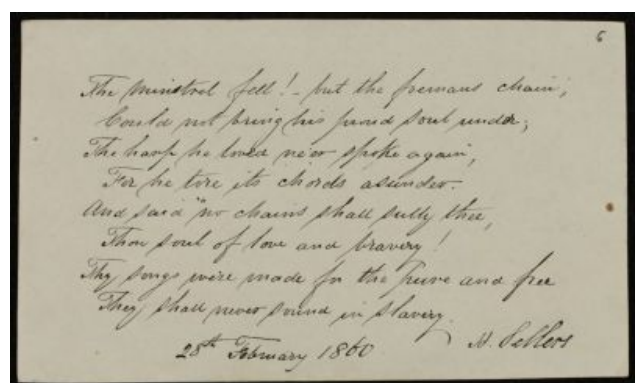 6
The minstrel fell! - but the foemans chain,
Could not bring his proud soul under;
The harp he loved ne'er spoke again,
For he tore its chords asunder.
And said "no chains shall sully thee,
Thou soul of love and bravery!
Thy songs were made for the pure and free
They shall never sound in slavery.
28th February 1860
H. Sellers